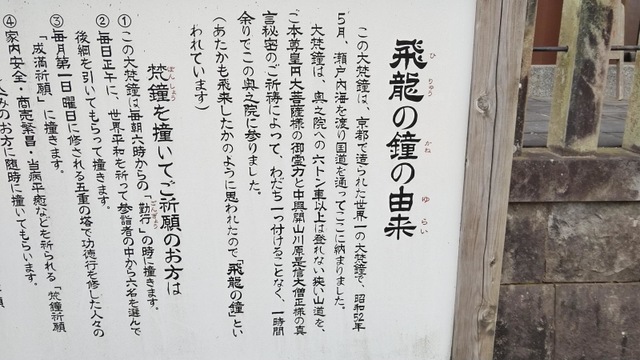 飛龍の鐘の由来
ひりゅう かね ゆらい
この大梵鐘は、京都で造られた世界一の大梵鐘で、昭和52年
5月、瀬戸内海を渡り国道を通ってここに納まりました。
大梵鐘は、奥之院への六トン車以上は登れない狭い山道を、
ご本尊皇円大菩薩様の御霊力と中興開山川原是信大僧正様の真
言秘密のご祈祷によって、わだち一つ付けることなく、一時間
余りでこの奥之院に参りました。
(あたかも飛来したかのように思われたので「飛龍の鐘」とい
われています)
梵鐘を撞いてご祈願のお方は
ぼんしょう
①この大梵鐘は毎朝六時からの「勤行」の時に撞きます。
ごんぎょう
②毎日正午に、世界平和を祈って参詣者の中から六名を選んで
後綱を引いてもらって撞きます。
③毎月第一日曜日に修される五重の塔で功徳行を修した人々の
「成満祈願」に撞きます。
④家内安全・商売繁昌・当病平癒などを祈られる「梵鐘祈願
込みのお方に随時に撞いてもらいます。